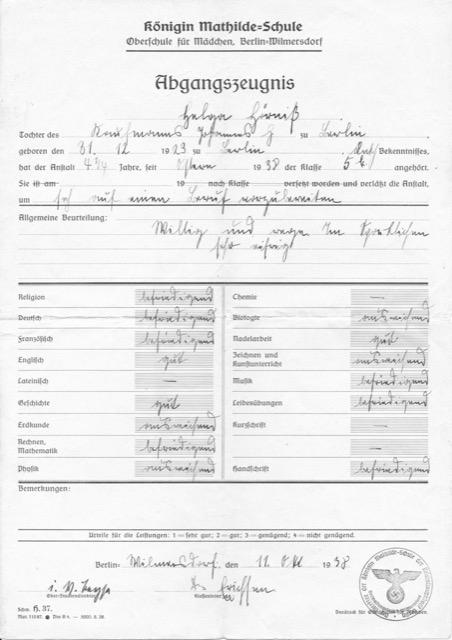 Königin Mathilde-Schule
Oberschule für Mädchen, Berlin-Wilmersdorf
Abgangszeugnis
Helga Hörniß
Tochter des Kaufmanns Johannes H zu Berlin
geboren den 31. 12 1923 zu Berlin Bekenntnisses,
hat der Anstalt 4 1/4 Jahre, seit Ostern 1938 der Klasse 5 angehört.
Sie ist am 19 nach Klasse versetzt worden und verläßt die Anstalt,
um sich auf einen Beruf vorzubereiten
Allgemeine Beurteilung:
Willig und rege. Im Sportlichen
sehr eifrig
Religion befriedigend
Deutsch befriedigend
Französisch befriedigend
Englisch gut
Lateinisch —
Geschichte gut
Erdkunde ausreichend
Rechnen,
Mathematik befriedigend
Physik ausreichend
Chemie —
Biologie ausreichend
Nadelarbeit gut
Zeichnen und
Kunstunterricht ausreichend
Musik befriedigend
Leibesübungen befriedigend
Kurzschrift —
—
Handschrift befriedigend
Bemerkungen:
Urteile für die Leistungen: 1 = sehr gut; 2 = gut; 3 = genügend; 4 = nicht genügend.
Berlin-Wilmersdorf, den 11. Okt 1938
i. V.
Schm. H. 37.